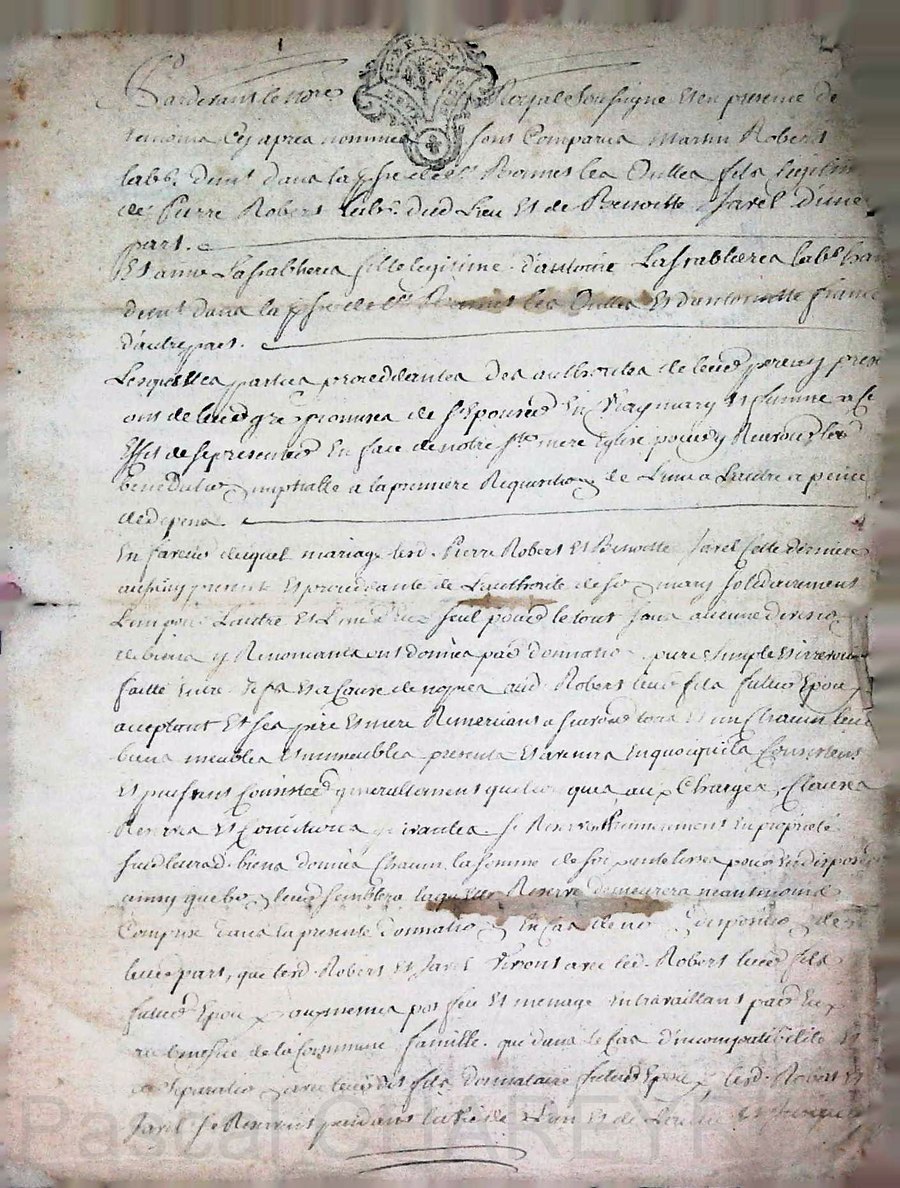 Pardevant le no.re Royal Soussigné Et en presence de
temoins Cy apres nommés sont Comparus Martin Robert
lab.r dem.t dans la p.sse de S.t Bonnet les Oulles fils legitime
de Pierre Robert lab.r dud Lieu Et de Benoitte Javel d'une
part.
Et anne Lasrablieres fille legitime d'antoine Lasrablieres lab.r
dem.t dans la p.sse de S.t Bonnet les Oulles Et d'antoinette france
d'autre part.
Lesquelles parties proceddantes des authorités de leurs peres
ont de leurs gré promises de s'Epouser En vray mary Et femme a Ce
Effet de se presenter En face de notre s.te mere Eglise pour y Recevoir les
benedictio nuptialle a la premiere Requisitio de L'un a Lautre a peine
de depens.
En faveur duquel mariage lesd. Pierre Robert Et Benoitte Javel Cette derniere
aussy presente Et proceddante de L'authorité de so mary solidairement
L'un pour Lautre Et L'un d'Eux seul pour le tout sans aucune divisio
de biens y Renonceants ont donnés par donnatio pure simple Et irrevo
faitte entre vifs Et a Cause de nopces aud. Robert leur fils futur Epoux
acceptant Et ses pere Et mere Remerciant a scavoir tous Et un Chacun leurs
biens meubles Et immeubles presents Et avenirs En quoiqu'ils Consistent
Et puissent Consister generallement quelconques, aux Charges, Clauses
Reserves Et Conditions suivantes. Se Reservent premierement En propriété
sur leursd. biens donnés Chacun la somme de soixante livres pour En disposer
ainsy que bo leur semblera laquelle Reserve demeurera neantmoins
Comprise dans la presente donnatio En Cas de no dispositio de
leur part, que lesd. Robert Et Javel vivront avec led. Robert leur fils
futur Epoux aux memes pot feu Et menage En travaillant par Eux
au benefice de la Commune famille. que dans le Cas d'incompatibilité Et
de separatio avec leur dit fils donnataire futur Epoux lesd. Robert Et
Javel se Reservent pendant la vie de L'un Et de Lautre
Pascal CHAREYR